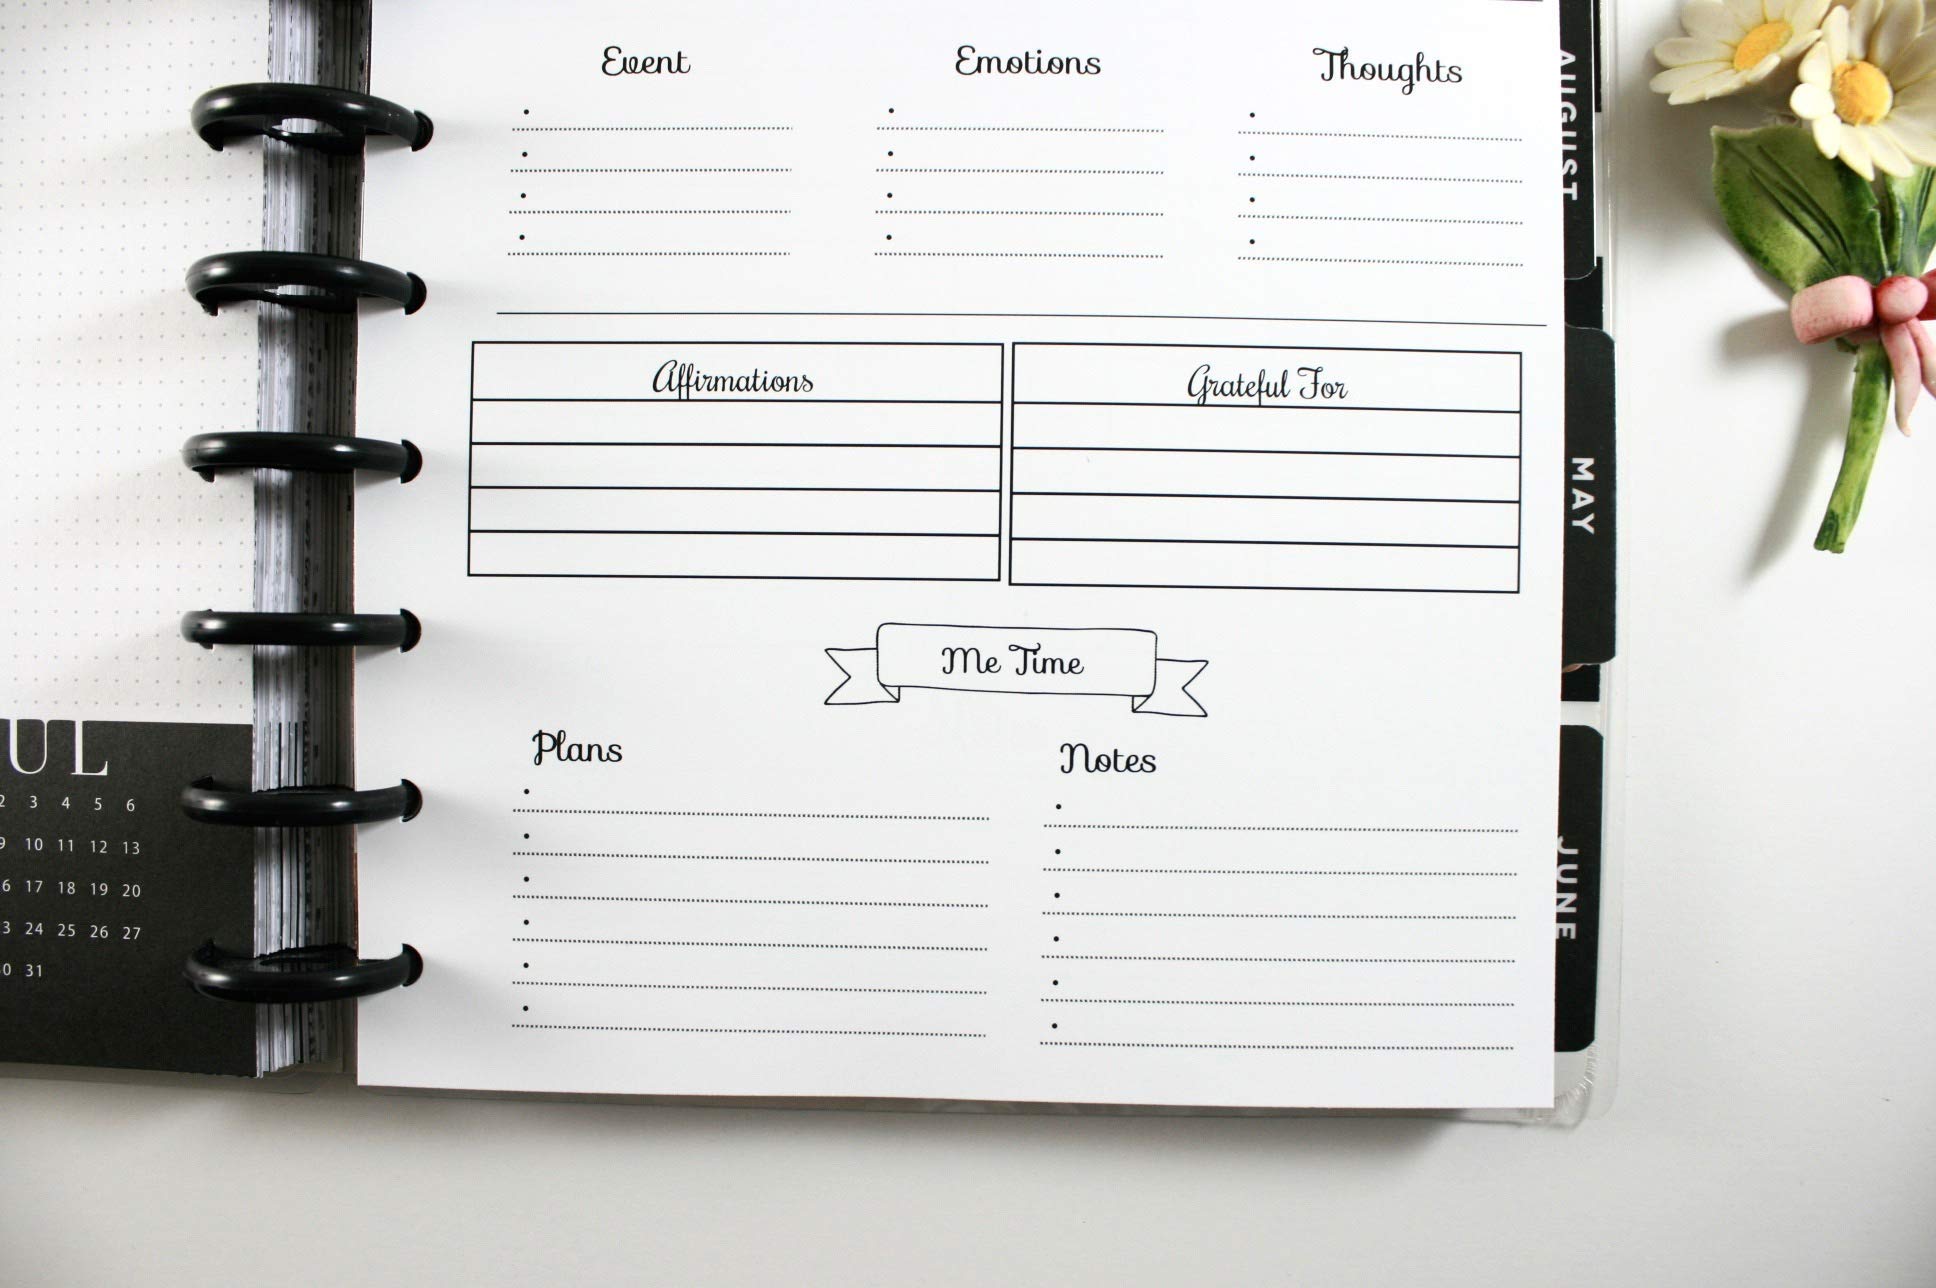 Event Emotions Thoughts
Affirmations Grateful For
Me Time
Plans Notes
AUGUST
MAY
JUNE
UL
2 3 4 5 6
9 10 11 12 13
6 17 18 19 20
3 24 25 26 27
0 31